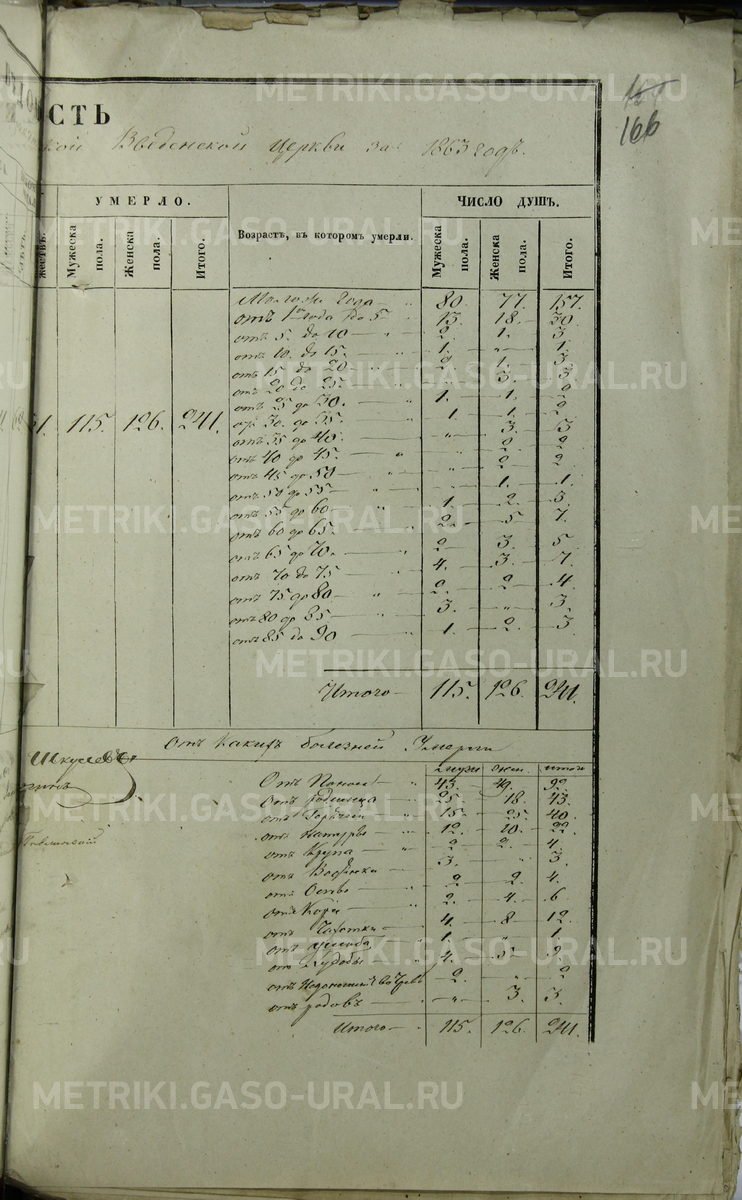 166
СТЬ
кой Введенской Церкви за 1863 годъ.
УМЕРЛО. ЧИСЛО ДУШЪ.
жествъ. Мужеска пола. Женска пола. Итого. Возрастъ, въ которомъ умерли. Мужеска пола. Женска пола. Итого.
года — " 80. 77. 157.
отъ 1 года до 5 — " 13. 18. 30.
отъ 5. до 10 — " 2. 1. 3
отъ 10. до 15. " 1. " 1.
отъ 15 до 20 — " 2. 1. 3.
отъ 20 до 25. — " " 3. 3
отъ 25 до 30. — 1. 1. 2
от 30. до 35. 1. 1. 2
отъ 35 до 40. " 3. 3
отъ 40 до 45. — " " 2 2
отъ 45 до 50 — " " 2 2
отъ 50 до 55 — " " 1. 1.
отъ 55 до 60 — " 1. 2. 3.
отъ 60 до 65. — 2. 5 7.
отъ 65 до 70. " 2 3. 5
отъ 70 до 75 — " 4. 3. 7.
отъ 75 до 80 — " 2. 2 4.
отъ 80 до 85 — " 3. " 3.
отъ 85 до 90 — " 1. 2. 3
115. 126. 241.
Итого — 115. 126. 241.
Отъ какихъ болезней Умерли
муж жен. итого
Отъ Поноса " 43. 49. 92.
Отъ родимца 25. 18. 43.
отъ Горячки " 15. 25. 40.
отъ Натуры " 12. 10. 22.
отъ Крупа " 2 2. 4.
отъ Водянки 3. " 3.
отъ Оспы " 2 2. 4.
отъ Кори " 2. 4. 6
отъ Чахотки 4. 8 12.
отъ 1. " 1.
от Худобы 4. 5 9.
отъ 2. " 2
отъ родовъ " 3. 3.
Итого — 115. 126. 241.
METRIKI.GASO-URAL.RU